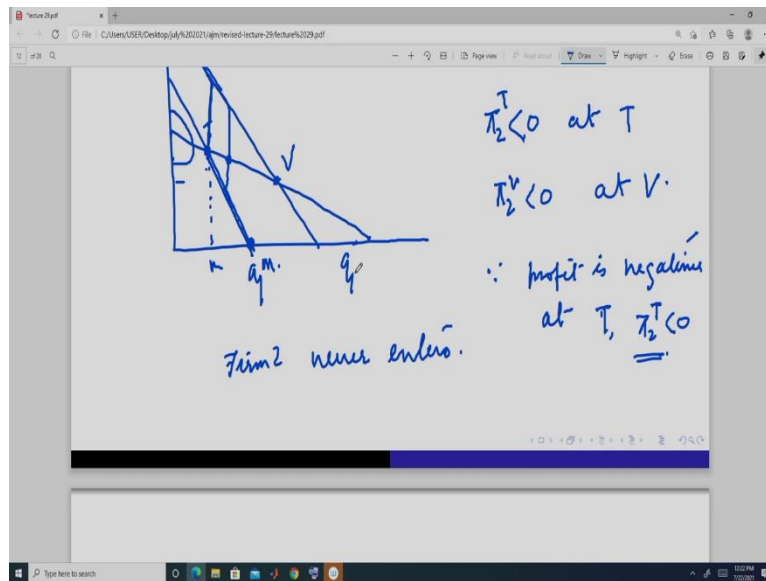 lecture 29.pdf
File | C:/Users/USER/Desktop/july%202021/ajm/revised-lecture-29/lecture%2029.pdf
12 of 28
Page view | Read aloud | Draw Highlight Erase
π₂ᵀ<0 at T
V
π₂ⱽ<0 at V.
∵ profit is negative
at T, π₂ᵀ<0
Firm 2 never enters.
Type here to search
12:22 PM
7/22/2021